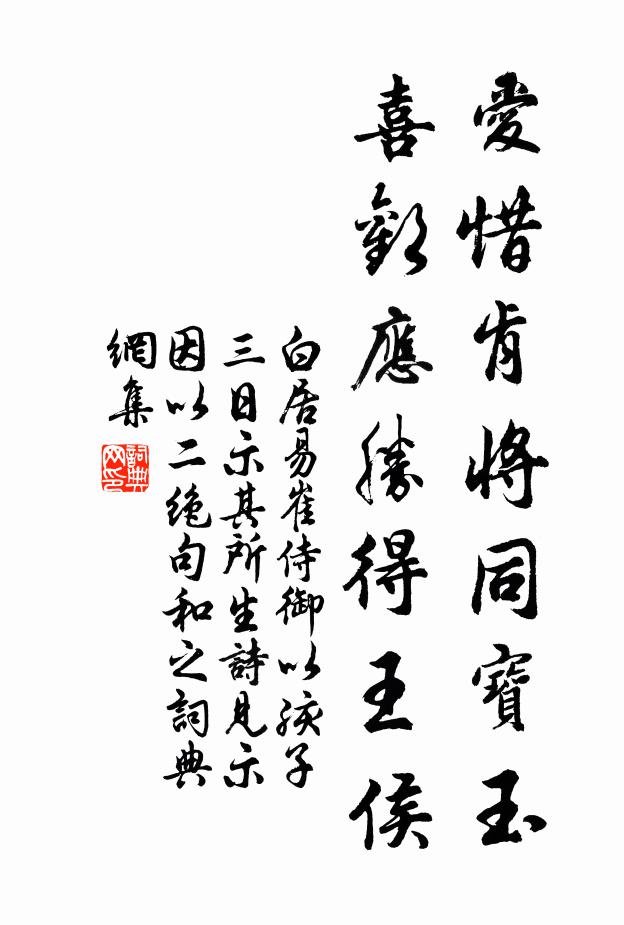 愛惜肯將同寶玉
喜歡應勝得王侯
白居易崔侍御以孩子
三日示其所生詩見示
因以二絶句和之詞典
網集
詞典
网印